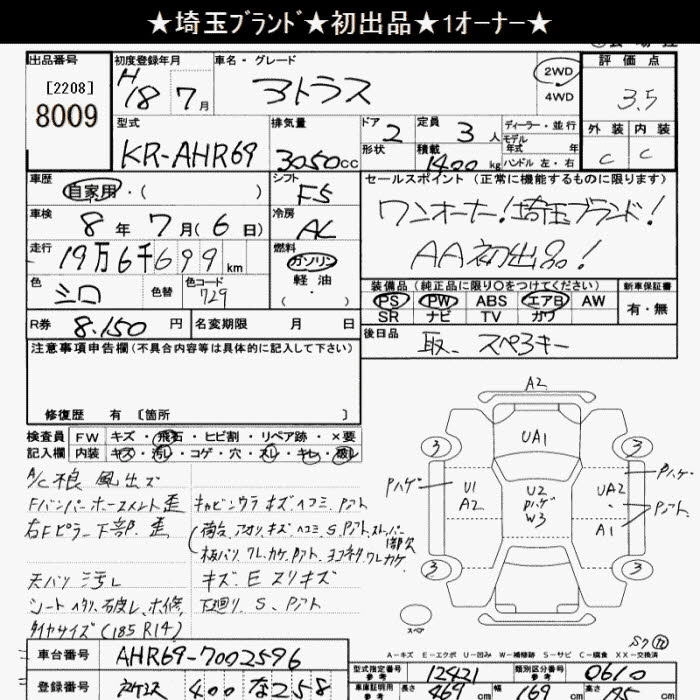 ★埼玉ﾌﾞﾗﾝﾄﾞ★初出品★1オーナー★
出品番号
[2208]
8009
初度登録年月
H18 7月
車名・グレード
アトラス
2WD
4WD
評価点
3.5
外装 内装
C C
型式
KR-AHR69
排気量
3050cc
ドア 2
形状
定員 3人
積載 1400kg
ディーラー・並行
モデル年式 年
ハンドル 左・右
車歴
自家用・( )
シフト
F5
セールスポイント (正常に機能するものに限ります)
ワンオーナー!埼玉ブランド!
AA初出品!
車検
8年7月(6日)
冷房
AC
走行
19万6千699km
燃料
ガソリン
軽油
( ・ )
色
シロ
色替
色コード
729
装備品 (純正品に限り○をつけてください)
PS PW ABS エアB AW
SR ナビ TV カワ
新車保証書
有・無
R券 8,150円
名変期限 月 日
後日品
取、スペアキー
注意事項申告欄(不具合内容等は具体的に記入して下さい)
修復歴 有 [箇所 ]
検査員記入欄
FW キズ・飛石・ヒビ割・リペア跡・×要
内装 キズ・汚レ・コゲ・穴・スレ・キレ・破レ
A/C 風出ズ
Fバンパーホースメント歪
右Fピラー下部歪
キャビンウラ キズ ヘコミ
キズ E スリキズ
天バリ 汚レ
下廻り S、
タイヤサイズ(185R14)
A2
UA1
3
3
U1
A2
U2
W3
UA2
A1
3
3
スペア
A-キズ E-エクボ U-凹み W-補修跡 S-サビ C-腐食 XX-交換済
車台番号 AHR69-7002596
登録番号 400 な 258
型式指定番号 参考 12421
類別区分番号 参考 0610
車庫証明用 参考
長さ 469cm
幅 169cm